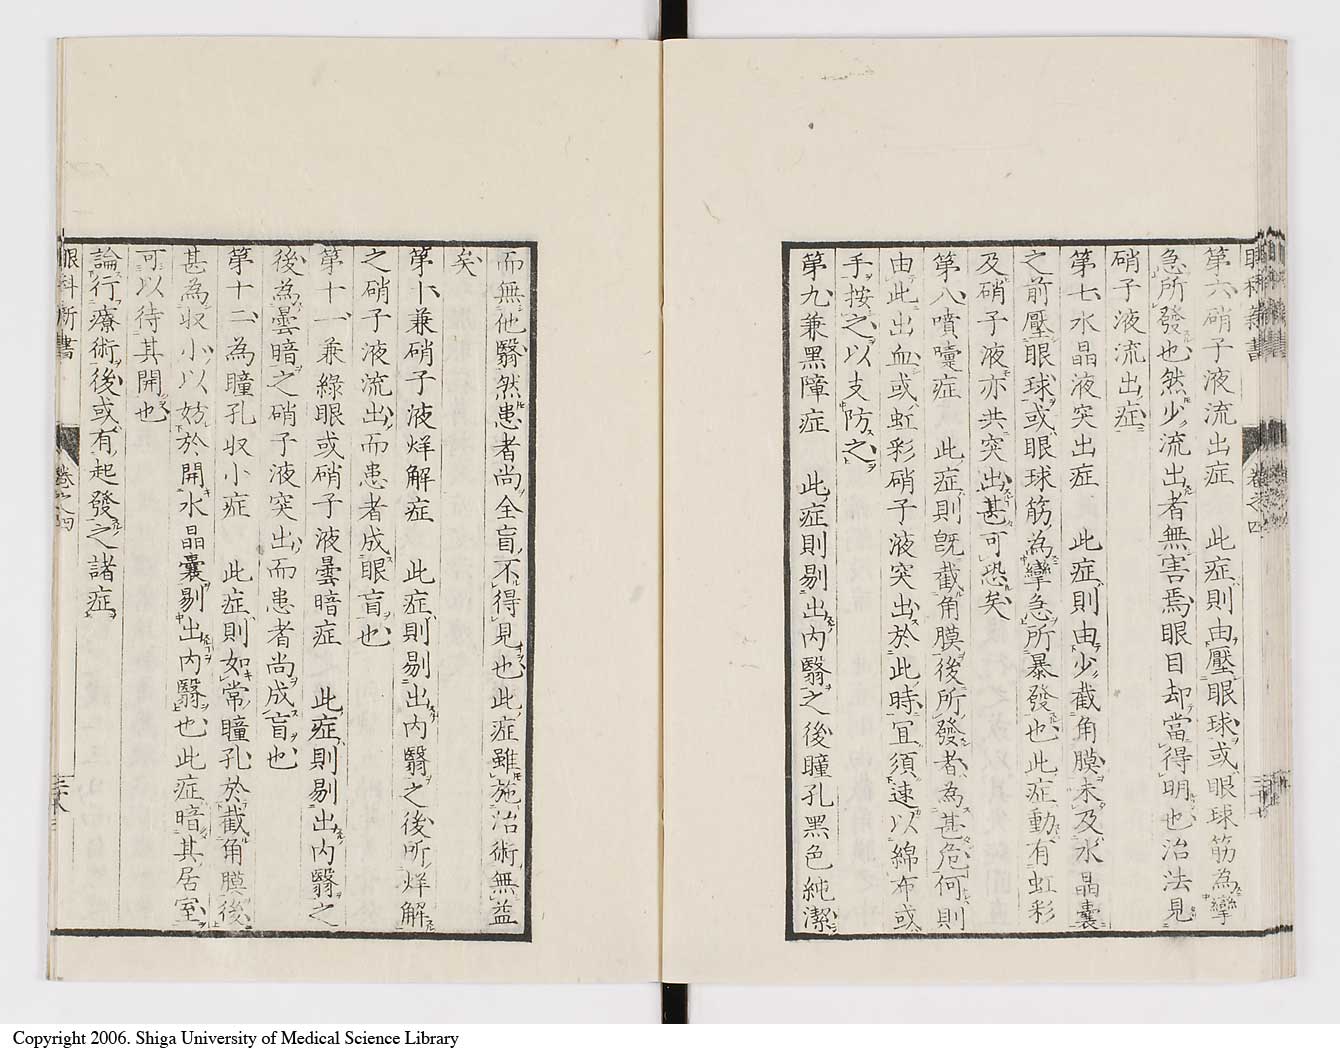 眼科新書
卷之四
三十七
第六、硝子液流出症　此症則由壓眼球或眼球筋為攣
急所發也然少流出者無害焉眼目却當得明也治法見
硝子液流出症
第七、水晶液突出症　此症則由少截角膜未及水晶囊
之前壓眼球或眼球筋為攣急所暴發也此症動有虹彩
及硝子液亦共突出甚可恐矣
第八、噴嚏症　此症則既截角膜後所發者為甚危何則
由此出血或虹彩硝子液突出於此時宜須速以綿布或
手按之以支防之
第九、兼黑障症　此症則剔出內翳之後瞳孔黑色純潔
而無他翳然患者尚全盲不得見也此症雖施治術無益
矣
第十、兼硝子液烊解症　此症則剔出內翳之後所烊解
之硝子液流出而患者成眼盲也
第十一、兼綠眼或硝子液曇暗症　此症則剔出內翳之
後為曇暗之硝子液突出而患者尚成盲也
第十二、為瞳孔収小症　此症則如常瞳孔於截角膜後
甚為収小以妨於開水晶囊剔出內翳也此症暗其居室
可以待其開也
論行療術後或有起發之諸症
眼科新書
卷之四
三十八
Copyright 2006. Shiga University of Medical Science Library